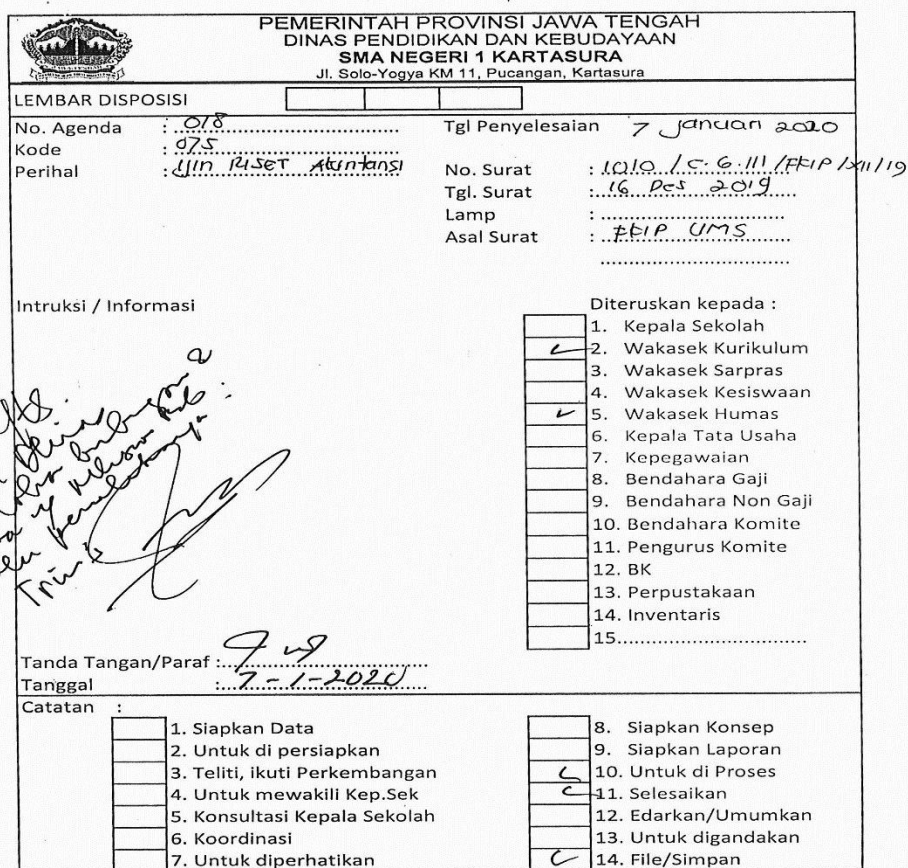 PEMERINTAH PROVINSI JAWA TENGAH
DINAS PENDIDIKAN DAN KEBUDAYAAN
SMA NEGERI 1 KARTASURA
Jl. Solo-Yogya KM 11, Pucangan, Kartasura
LEMBAR DISPOSISI
No. Agenda : 018
Kode : 075
Perihal : Ijin RISET Akuntansi
Tgl Penyelesaian 7 Januari 2020
No. Surat : 1010 / C.6.III / FKIP / XII / 19
Tgl. Surat : 16 Des 2019
Lamp :
Asal Surat : FKIP UMS
Intruksi / Informasi
Diteruskan kepada :
1. Kepala Sekolah
2. Wakasek Kurikulum
3. Wakasek Sarpras
4. Wakasek Kesiswaan
5. Wakasek Humas
6. Kepala Tata Usaha
7. Kepegawaian
8. Bendahara Gaji
9. Bendahara Non Gaji
10. Bendahara Komite
11. Pengurus Komite
12. BK
13. Perpustakaan
14. Inventaris
15.
Tanda Tangan/Paraf :
Tanggal : 7-1-2020
Catatan :
1. Siapkan Data
2. Untuk di persiapkan
3. Teliti, ikuti Perkembangan
4. Untuk mewakili Kep.Sek
5. Konsultasi Kepala Sekolah
6. Koordinasi
7. Untuk diperhatikan
8. Siapkan Konsep
9. Siapkan Laporan
10. Untuk di Proses
11. Selesaikan
12. Edarkan/Umumkan
13. Untuk digandakan
14. File/Simpan